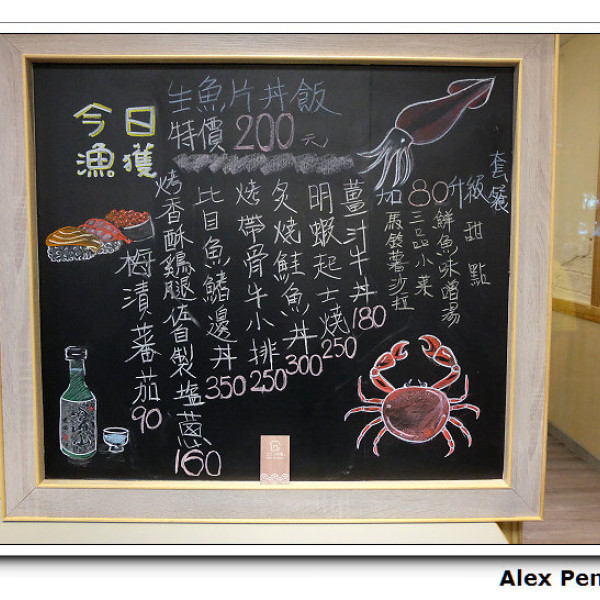 今日
漁獲
生魚片丼飯
特價200元
套餐
加80升級
甜點
鮮魚味噌湯
三品小菜
馬鈴薯沙拉
薑汁牛丼180
明蝦起士燒250
炙燒鮭魚丼300
烤帶骨牛小排250
比目魚鰭邊丼350
烤香酥雞腿佐自製塩蔥160
梅漬蕃茄90
Alex Pen